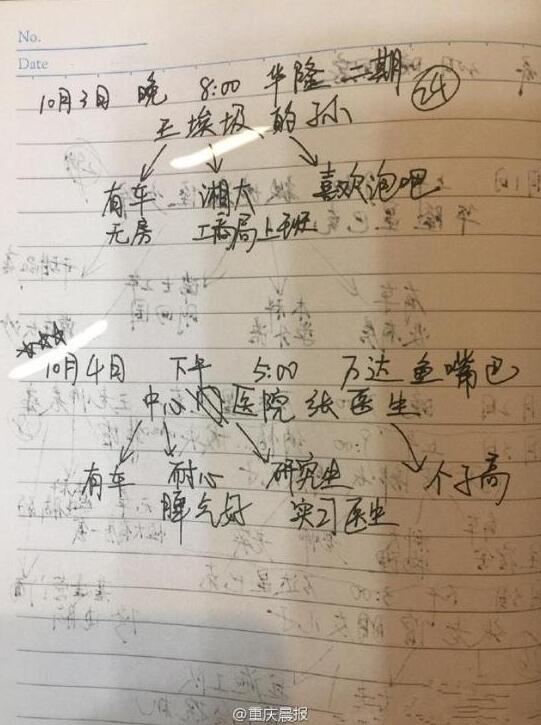 No.
Date
10月3日 晚 8:00 华隆二期 24
王埃圾的孙
有车 湘大 喜欢泡吧
无房 工商局上班
☆☆☆
10月4日 下午 5:00 万达鱼嘴巴
中心医院张医生
有车 耐心 研究生 个子高
脾气好 实习医生
@重庆晨报